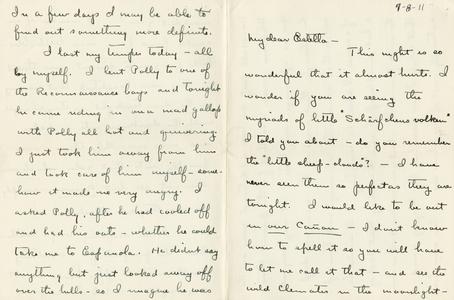 9-8-11
My dear Estella –
This night is so
wonderful that it almost hurts. I
wonder if you are seeing the
myriads of little "Schäfchens volken"
I told you about – do you remember
the "little sheep-clouds"? – I have
never seen them so perfect as they are
tonight. I would like to be out
in our Cañon – I don't know
how to spell it so you will have
to let me call it that – and see the
wild Clematis in the moonlight –
In a few days I may be able to
find out something more definite.
I lost my temper today – all
by myself. I lent Polly to one of
the Reconnaissance boys and tonight
he came riding in on a mad gallop
with Polly all hot and quivering.
I just took him away from him
and took care of him myself – some-
how it made me very angry. I
asked Polly, after he had cooled off
and had his oats – whether he could
take me to Española. He didn't say
anything but just looked away off
over the hills – so I imagine he was